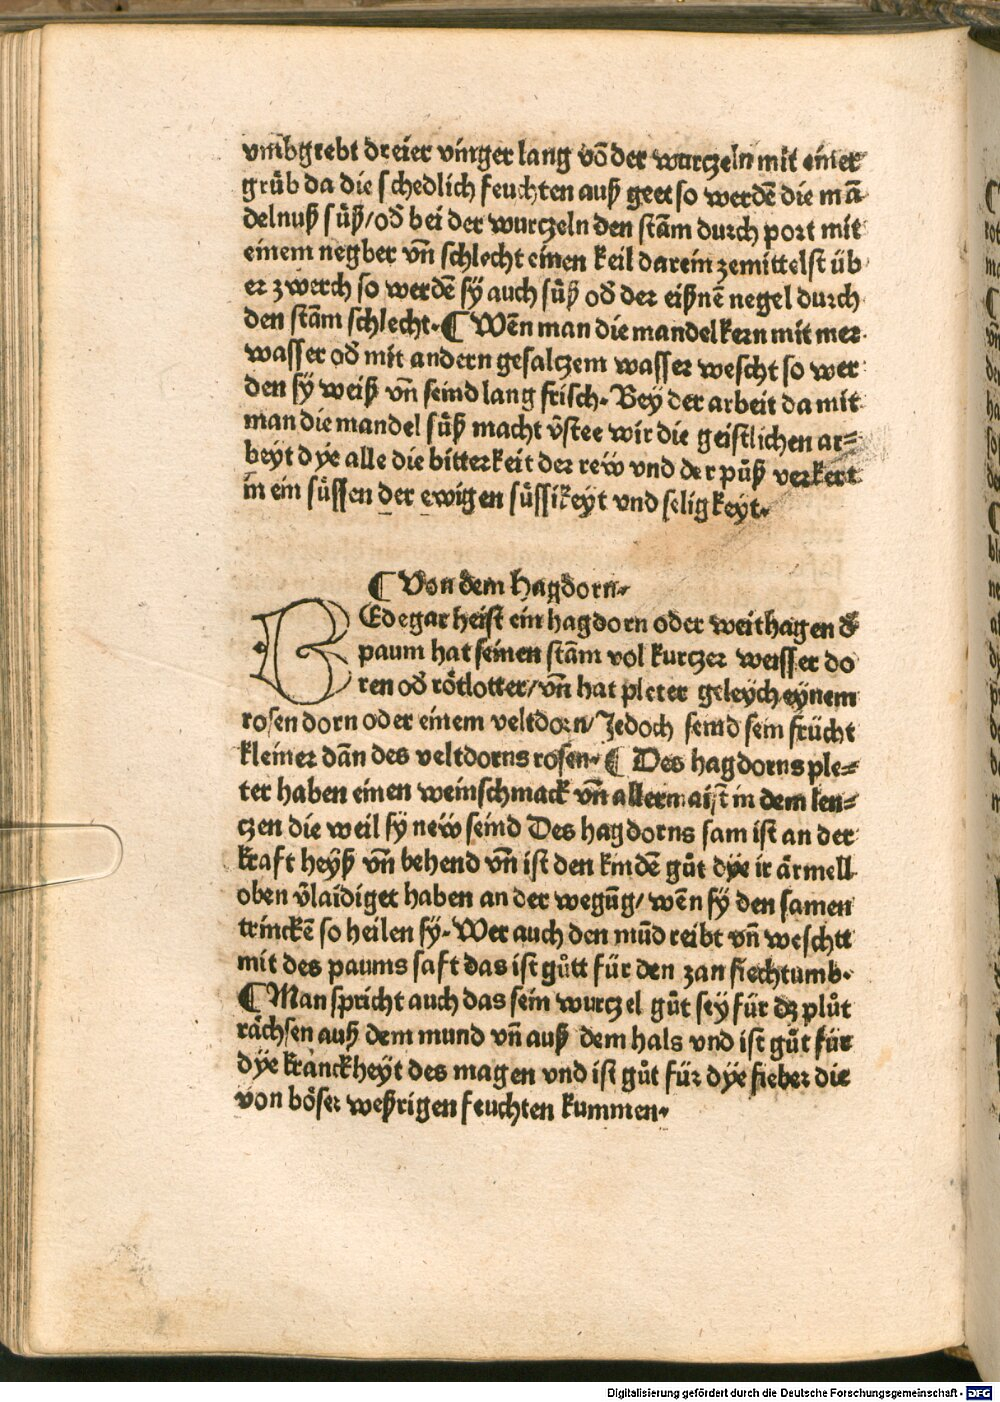 vmbgrebt dreier vinger lang vō der wurczeln mit einer
grůb da die schedlich feuchten auß geet so werdē die mā
delnuß sůß/od̄ bei der wurczeln den stām durch port mit
einem negber vn̄ schlecht einen keil darein zemittelst üb
er zwerch so werdē sÿ auch sůß od̄ der eißnē negel durch
den stām schlecht. ¶ Wēn man die mandelkern mit mer
wasser od̄ mit andern gesalczem wasser wescht so wer
den sÿ weiß vn̄ seind lang frisch. Beÿ der arbeit da mit
man die mandel sůß macht v̄stee wir die geistlichen ar⸗
beyt dÿe alle die bitterkeit der rew vnd der půß verkert
in ein sůssen der ewigen sůssikeyt vnd seligkeyt.
¶ Von dem Hagdorn.
BEdegar heist ein hagdorn oder weithagen d̄
paum hat seinen stām vol kurczer weisser do
ren od̄ rötlotter/vn̄ hat pleter geleych eynem
rosen dorn oder einem veltdorn/Jedoch seind sein frücht
kleiner dān des veltdorns rosen. ¶ Des hagdorns ple⸗
ter haben einen weinschmack vn̄ allermaist in dem len⸗
czen die weil sÿ new seind Des hagdorns sam ist an der
kraft heyß vn̄ behend vn̄ ist den kindē gůt dÿe ir ärmell
oben v̄laidiget haben an der wegūg/wēn sÿ den samen
trinckē so heilen sÿ. Wer auch den mūd reibt vn̄ weschtt
mit des paums saft das ist gůtt für den zan siechtumb.
¶ Man spricht auch das sein wurczel gůt sey für dz plůt
rächsen auß dem mund vn̄ auß dem hals vnd ist gůt für
dÿe kranckheyt des magen vnd ist gůt für dÿe fieber die
von böser weßrigen feuchten kummen.
Digitalisierung gefördert durch die Deutsche Forschungsgemeinschaft - DFG